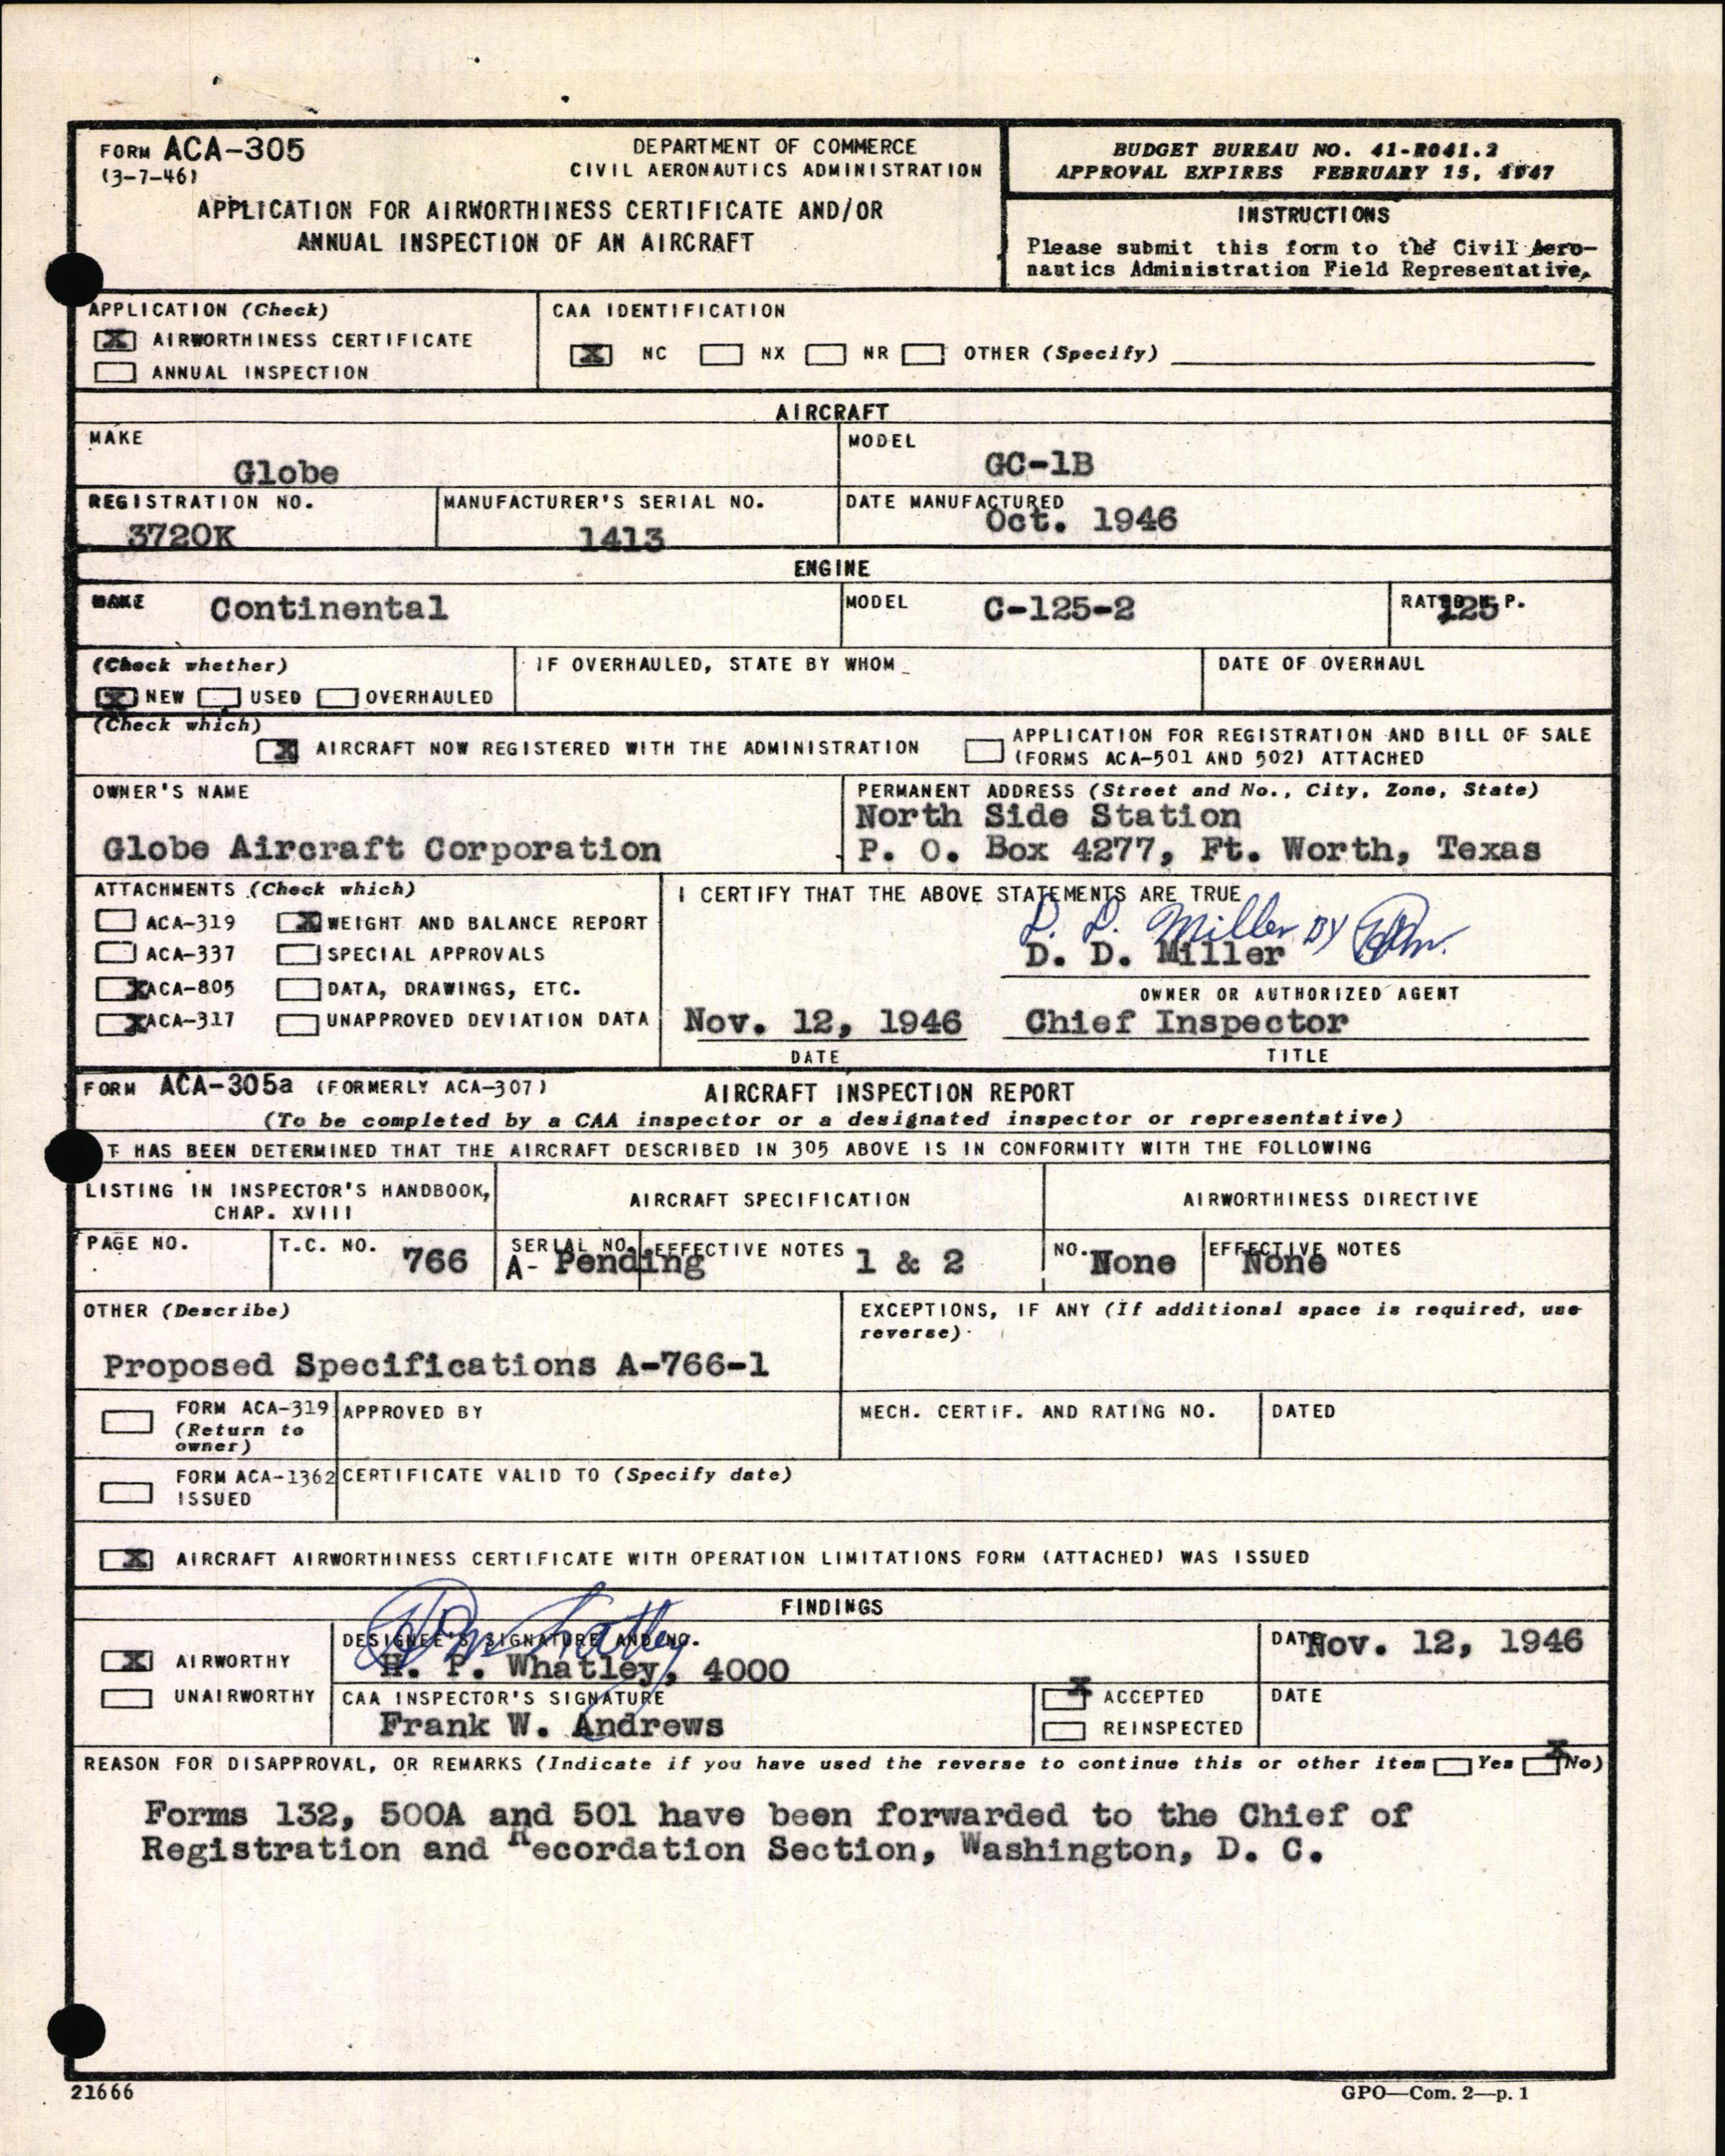 FORM ACA-305
(3-7-46)
DEPARTMENT OF COMMERCE
CIVIL AERONAUTICS ADMINISTRATION
APPLICATION FOR AIRWORTHINESS CERTIFICATE AND/OR
ANNUAL INSPECTION OF AN AIRCRAFT
BUDGET BUREAU NO. 41-R041.2
APPROVAL EXPIRES FEBRUARY 15, 1947
INSTRUCTIONS
Please submit this form to the Civil Aero-
nautics Administration Field Representative.
APPLICATION (Check)
X AIRWORTHINESS CERTIFICATE
ANNUAL INSPECTION
CAA IDENTIFICATION
X NC NX NR OTHER (Specify)
AIRCRAFT
MAKE
Globe
MODEL
GC-1B
REGISTRATION NO.
3720K
MANUFACTURER'S SERIAL NO.
1413
DATE MANUFACTURED
Oct. 1946
ENGINE
MAKE Continental
MODEL C-125-2
RATED H.P.
125
(Check whether)
X NEW USED OVERHAULED
IF OVERHAULED, STATE BY WHOM
DATE OF OVERHAUL
(Check which)
X AIRCRAFT NOW REGISTERED WITH THE ADMINISTRATION
APPLICATION FOR REGISTRATION AND BILL OF SALE
(FORMS ACA-501 AND 502) ATTACHED
OWNER'S NAME
Globe Aircraft Corporation
PERMANENT ADDRESS (Street and No., City, Zone, State)
North Side Station
P. O. Box 4277, Ft. Worth, Texas
ATTACHMENTS (Check which)
ACA-319 X WEIGHT AND BALANCE REPORT
ACA-337 SPECIAL APPROVALS
X ACA-805 DATA, DRAWINGS, ETC.
X ACA-317 UNAPPROVED DEVIATION DATA
I CERTIFY THAT THE ABOVE STATEMENTS ARE TRUE
D. D. Miller BY
D. D. Miller
OWNER OR AUTHORIZED AGENT
Nov. 12, 1946 Chief Inspector
DATE TITLE
FORM ACA-305a (FORMERLY ACA-307) AIRCRAFT INSPECTION REPORT
(To be completed by a CAA inspector or a designated inspector or representative)
T HAS BEEN DETERMINED THAT THE AIRCRAFT DESCRIBED IN 305 ABOVE IS IN CONFORMITY WITH THE FOLLOWING
LISTING IN INSPECTOR'S HANDBOOK,
CHAP. XVIII
AIRCRAFT SPECIFICATION
AIRWORTHINESS DIRECTIVE
PAGE NO.
T.C. NO. 766
SERIAL NO.
A- Pending
EFFECTIVE NOTES 1 & 2
NO. None
EFFECTIVE NOTES
None
OTHER (Describe)
Proposed Specifications A-766-1
EXCEPTIONS, IF ANY (If additional space is required, use
reverse)
FORM ACA-319
(Return to
owner)
APPROVED BY
MECH. CERTIF. AND RATING NO.
DATED
FORM ACA-1362
ISSUED
CERTIFICATE VALID TO (Specify date)
X AIRCRAFT AIRWORTHINESS CERTIFICATE WITH OPERATION LIMITATIONS FORM (ATTACHED) WAS ISSUED
FINDINGS
X AIRWORTHY
UNAIRWORTHY
DESIGNEE'S SIGNATURE AND NO.
H. P. Whatley, 4000
DATE Nov. 12, 1946
CAA INSPECTOR'S SIGNATURE
Frank W. Andrews
X ACCEPTED
REINSPECTED
DATE
REASON FOR DISAPPROVAL, OR REMARKS (Indicate if you have used the reverse to continue this or other item Yes X No)
Forms 132, 500A and 501 have been forwarded to the Chief of
Registration and Recordation Section, Washington, D. C.
21666
GPO—Com. 2—p. 1